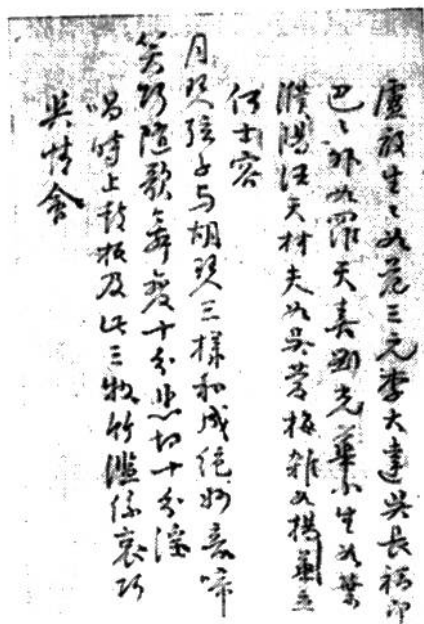 盧啟生之如范三元李大達吳長福卬
巴之外如羅天喜劉光華小生如葉
濮陽汪天林夫如吳芳梅雜如楊華立
何士容
月琴弦子与胡琴三樣和成絕妙音啼
笑巧隨歌舞變十分悲切十分淫
唱時上鼓板及此三物竹濫係哀巧
與情會